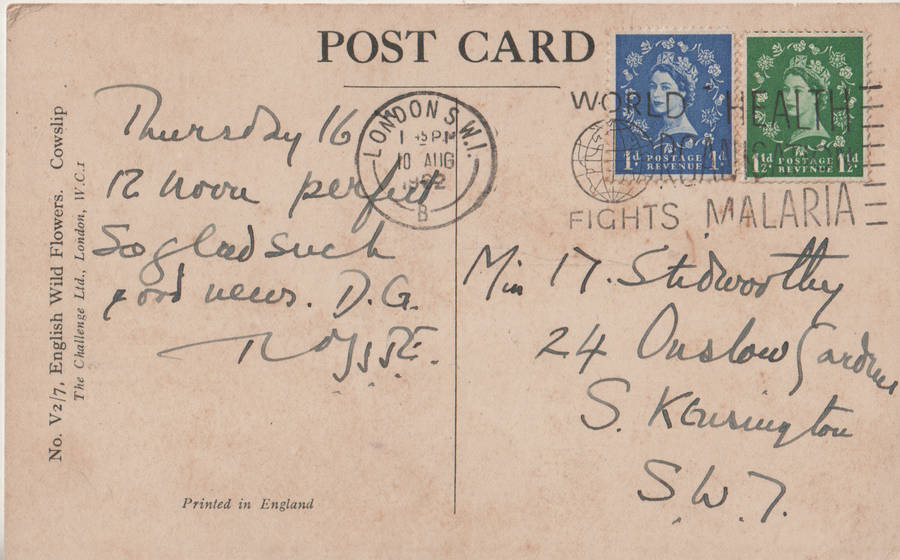 POST CARD
No. V2/7, English Wild Flowers. Cowslip
The Challenge Ltd., London, W.C.1
Thursday 16
12 noon perfect
So glad such
good news. D.G.
LONDON S.W.1.
1 45 PM
10 AUG
1962
B
WORLD HEALTH
FIGHTS MALARIA
1d POSTAGE 1d
REVENUE
1½d POSTAGE 1½d
REVENUE
Miss M. Stidworthy
24 Onslow Gardens
S. Kensington
S.W.7.
Printed in England